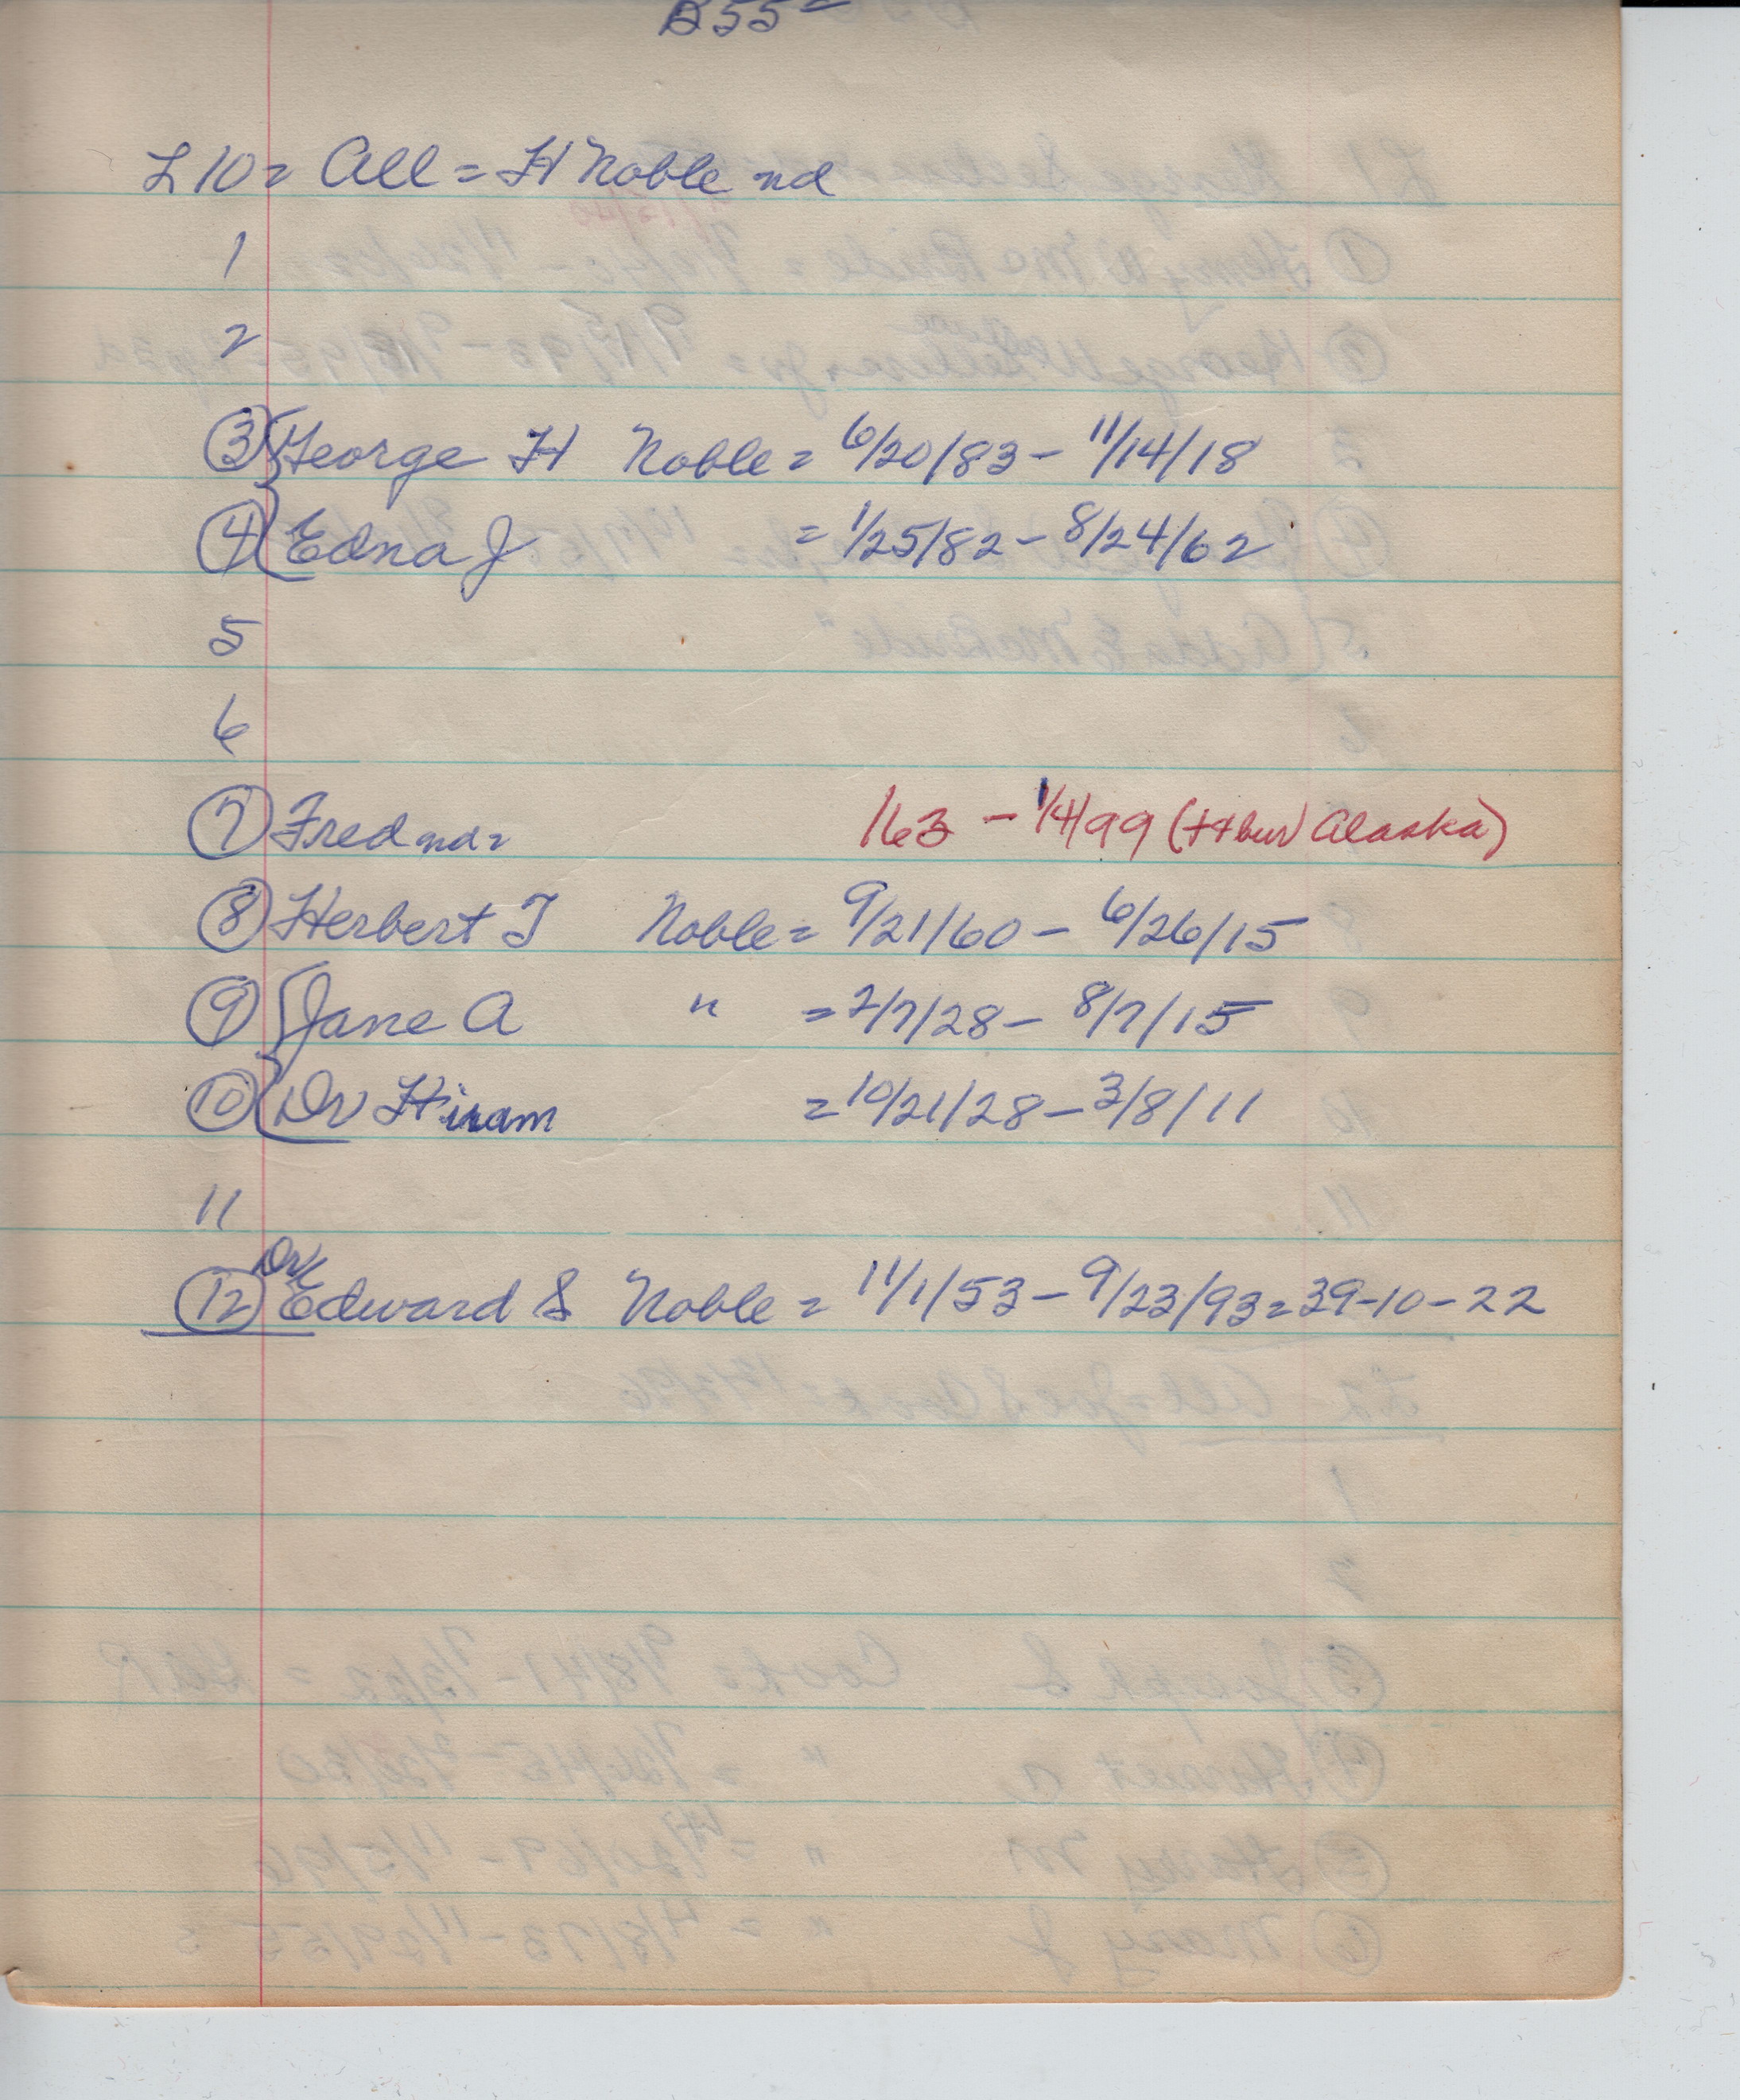 B55
L10 = All = H Noble nd
1
2
3 George H Noble = 6/20/83 - 11/14/18
4 Edna J = 1/25/82 - 8/24/62
5
6
7 Fred nd = 163 - 1/4/99 ( bur Alaska)
8 Herbert T Noble = 9/21/60 - 6/26/15
9 Jane A " = 2/7/28 - 8/7/15
10 Dr Hiram = 10/21/28 - 3/8/11
11
Dr
12 Edward S Noble = 11/1/53 - 9/23/93 = 39-10-22